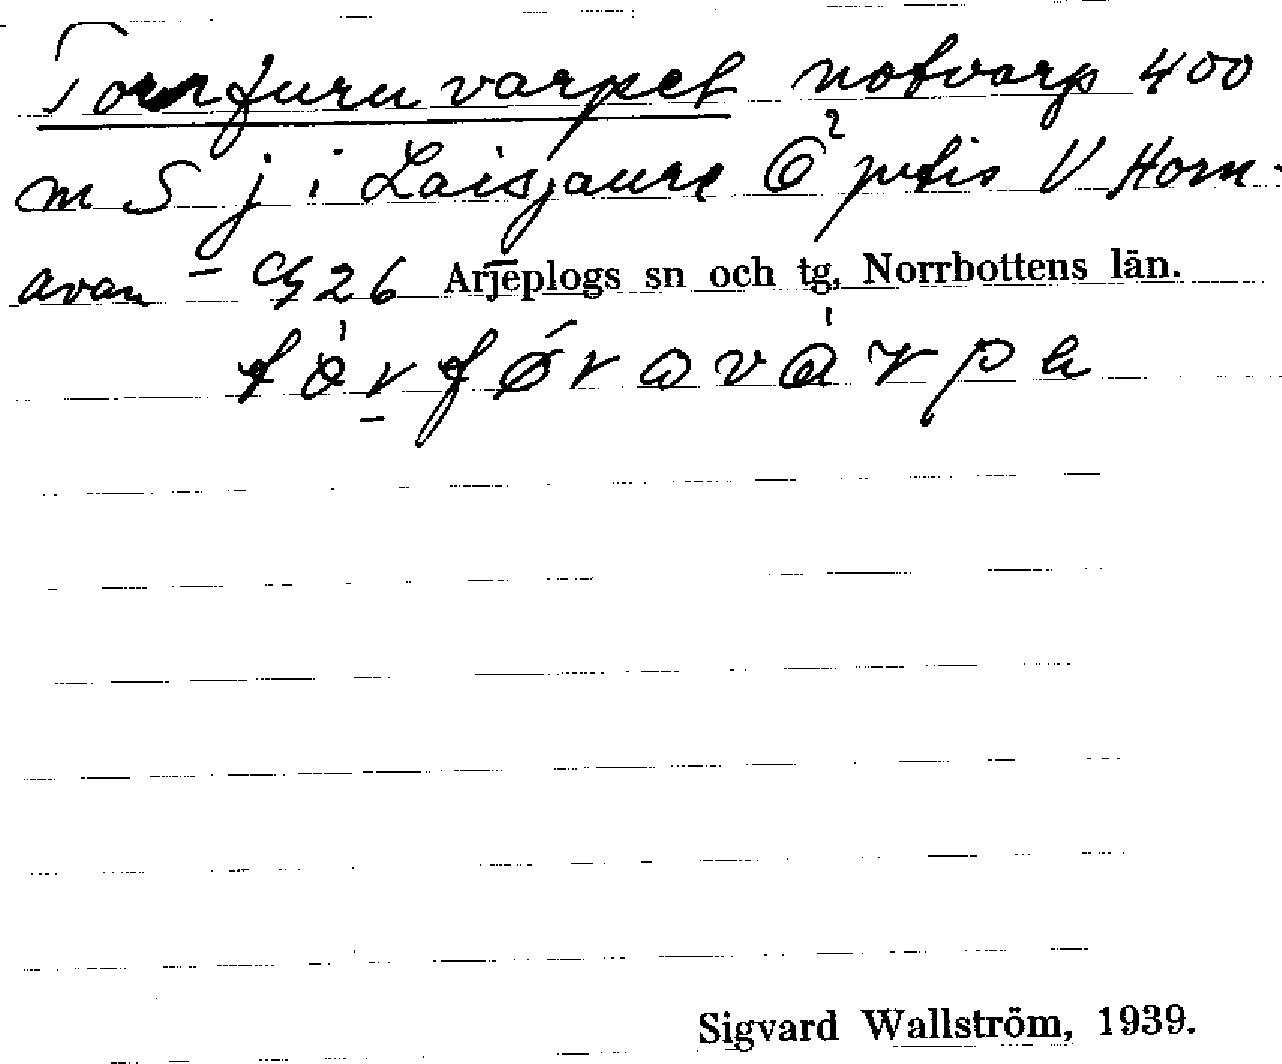 Tornfuruvarpet notvarp 400
m S j i Laisjaure Ö² ptis V Horn-
avan – 26 Arjeplogs sn och tg, Norrbottens län.
Sigvard Wallström, 1939.